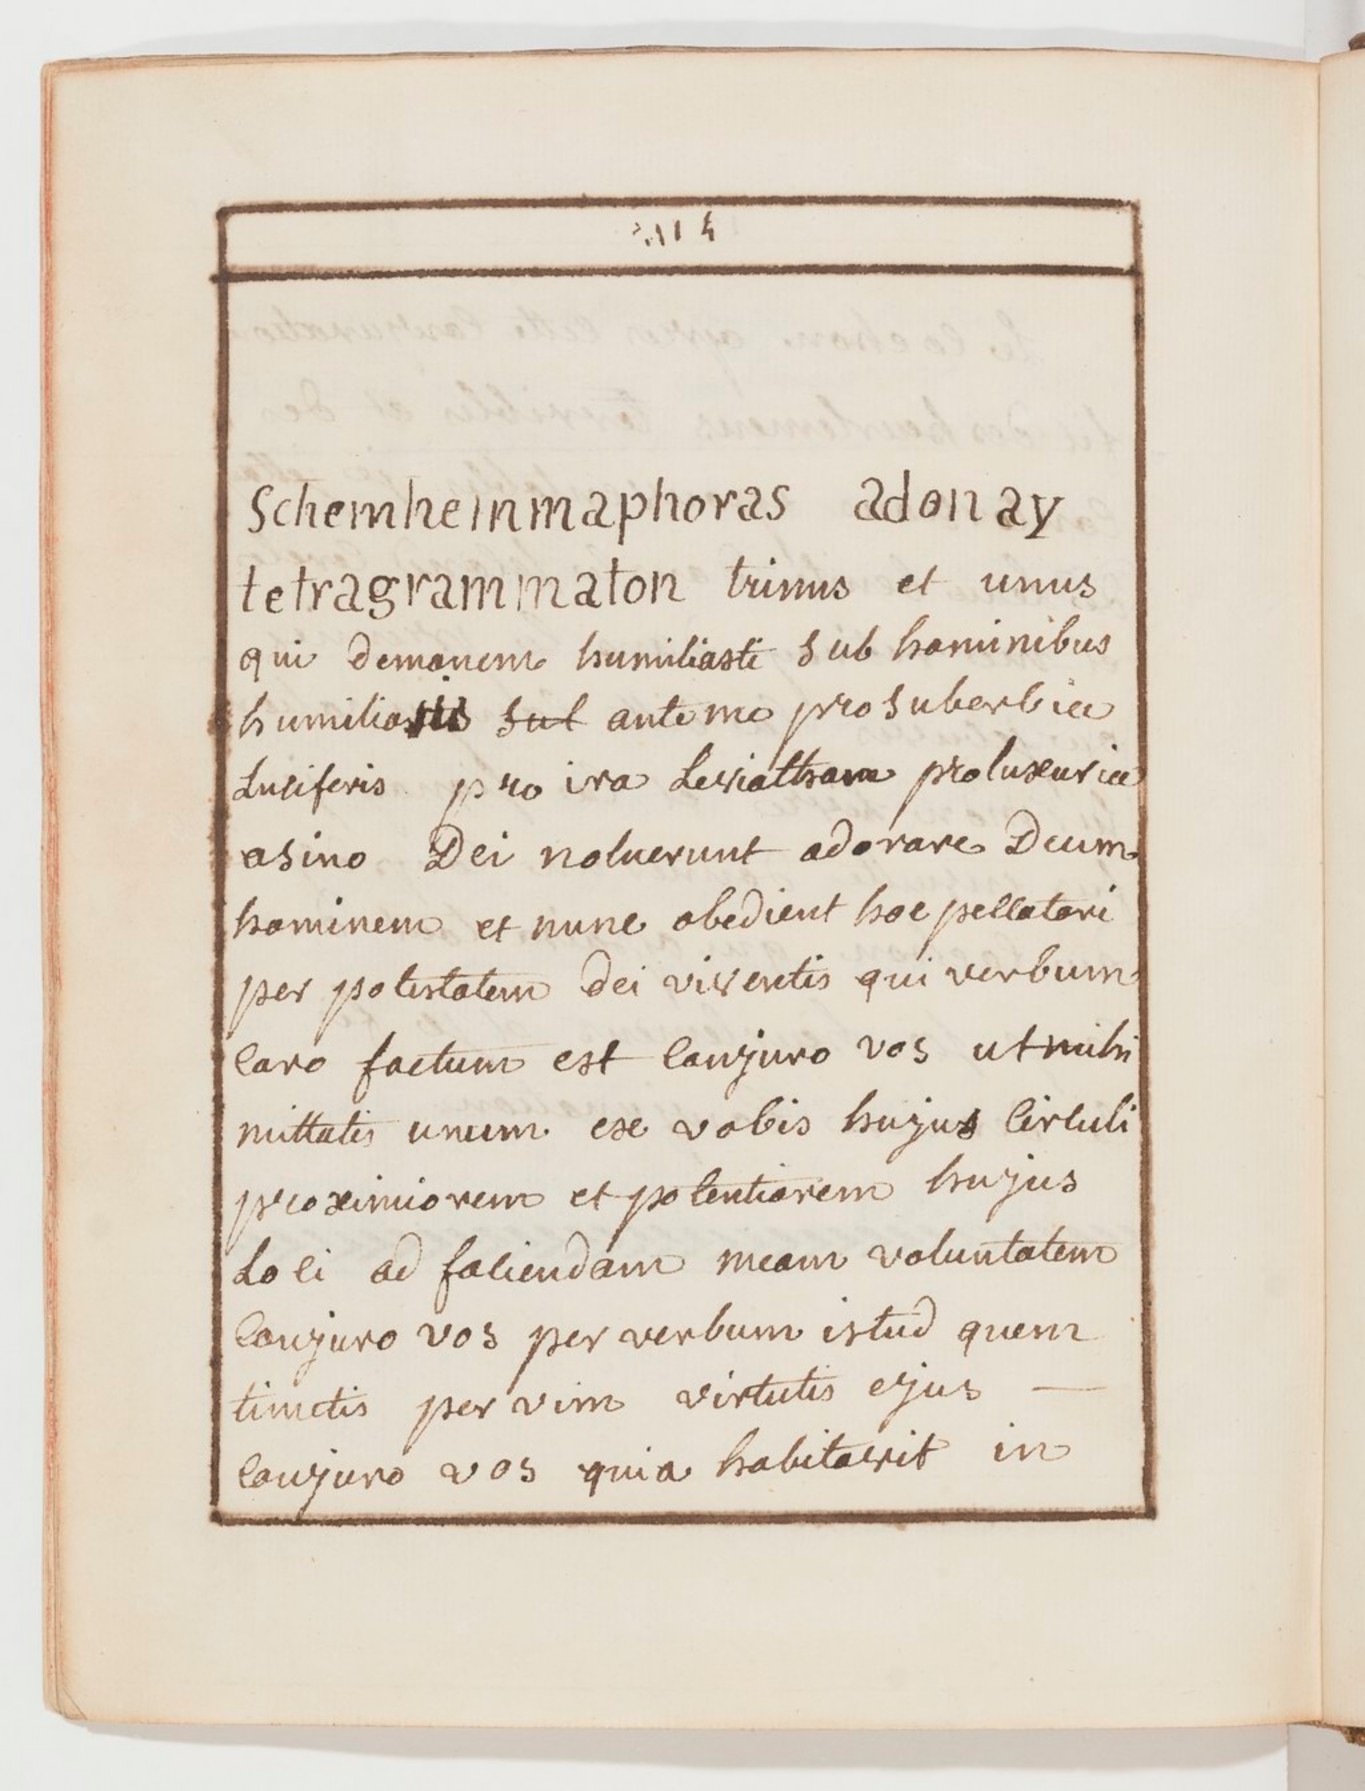 Schemheinmaphoras adonay
tetragrammaton trinus et unus
qui demonem humiliasti sub hominibus
humiliastis sub ante me pro suberbia
Luciferis pro ira Leviatham pro luxuria
asino Dei noluerunt adorare Deum
hominem et nunc obedient hoc pellatori
per potestatem dei viventis qui verbum
Caro factum est Conjuro vos ut mihi
mittatis unum ex vobis hujus Circuli
proximiorem et potentiorem hujus
Loci ad faciendam meam voluntatem
Conjuro vos per verbum istud quem
timetis per vim virtutis ejus —
Conjuro vos quia habitavit in